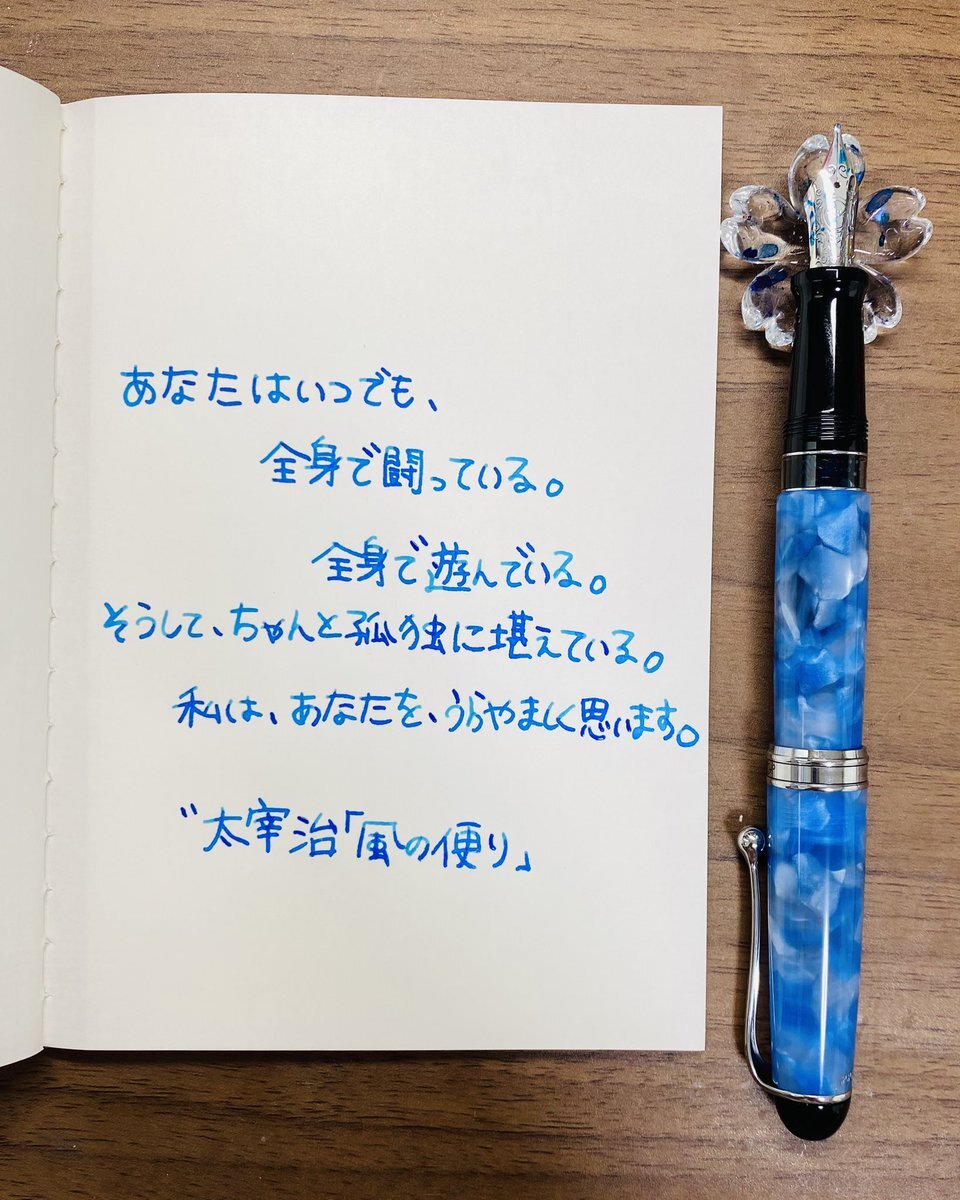 あなたはいつでも、
全身で闘っている。
全身で遊んでいる。
そうして、ちゃんと孤独に堪えている。
私は、あなたを、うらやましく思います。
〃太宰治「風の便り」